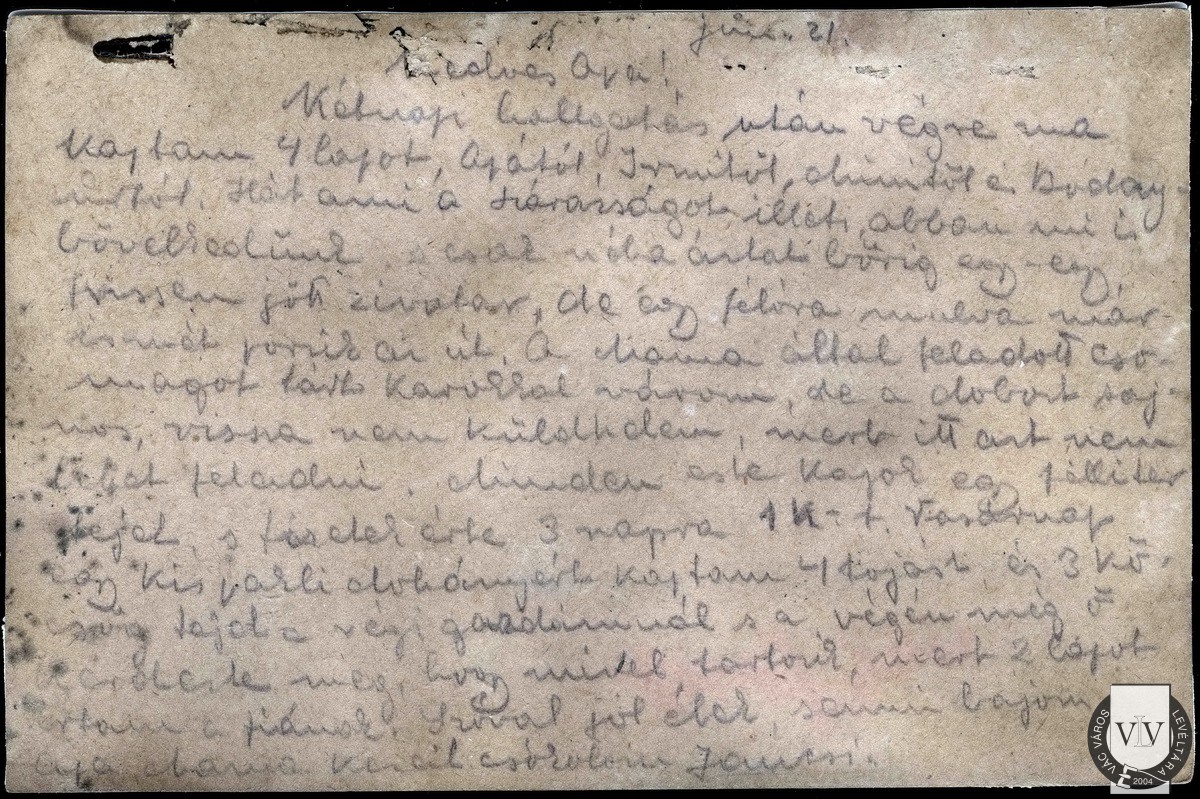 jun. 21.
Kedves Apa!
Kétnapi hallgatás után végre ma
kaptam 4 lapot, Apától, Irmitől, Mimitől és Bodny
úrtól. Hát ami a szárazságot illeti, abban mi is
bővelkedünk s csak néha áztat bőrig egy-egy
frissen jött zivatar, de egy félóra mulva már
ismét porzik az út. A Mama által feladott cso-
magot tárt karokkal várom, de a dobozt saj-
nos, vissza nem küldhetem, mert itt azt nem
lehet feladni. Minden este kapok egy félliter
tejet, s fizetek érte 3 napra 1 K-t. Vasárnap
egy kis pakli dohányért kaptam 4 tojást és 3 kö-
csög tejet a régi gazdámnál s a végén még ő
kérdezte meg, hogy mivel tartozik, mert 2 lapot
írtam a fiának. Szóval jól élek, semmi bajom
Apa Mama kezeit csókolom Jancsi.
VÁC VÁROS LEVÉLTÁRA
VLV
2004